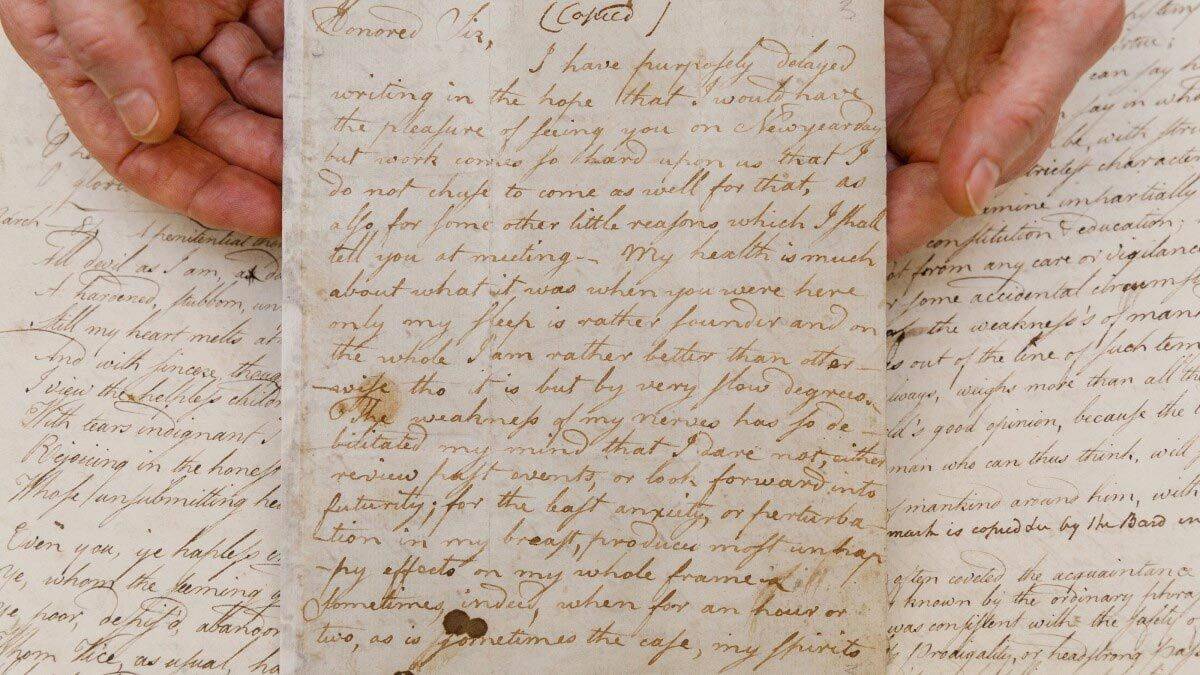 (Copied)
Honored Sir,
I have purposely delayed
writing in the hope that I would have
the pleasure of seeing you on Newyearday
but work comes so hard upon us that I
do not chuse to come as well for that, as
also, for some other little reasons which I shall
tell you at meeting — My health is much
about what it was when you were here
only my sleep is rather sounder and on
the whole I am rather better than other-
-wise tho it is but by very slow degrees. —
The weakness of my nerves has so de-
bilitated my mind that I dare not, either
review past events, or look forward into
futurity; for the least anxiety, or perturba-
tion in my breast, produces most unhap
-py effects on my whole frame.
Sometimes, indeed, when for an hour or
two, as is sometimes the case, my spirits
March
A penitential
All devil as I am, a
A hardened, stubborn, un
Still my heart melts at
And with sincere, thoug
I view the helpless childr
With tears indignant I
Rejoicing in the honest
Whose unsubmitting he
Even you, ye hapless
Ye, whom the seeming
Ye poor, despis'd, abandon
Whom Vice, as usual, ha
can say h
say in wh
be, with stri
strictest character
emine impartially
constitution & education;
not from any care or vigilanc
or some accidental circumst
the weakness's of man
s out of the line of such tem
lways, weighs more than all th
ld's good opinion, because the
man who can thus think, will
mankind around him, with
mark is copied by the Bard
often coveted the acquaintance
known by the ordinary phra
was consistent with the safety o
Prodigality, or headstrong Pass